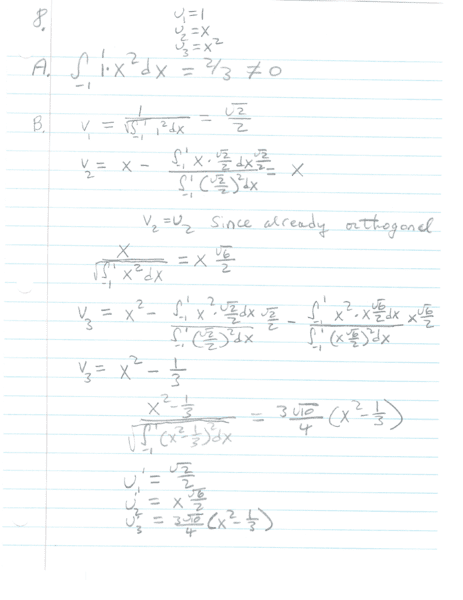 8.
u₁=1
u₂=x
u₃=x²
A. ∫₋₁¹ 1·x²dx = 2/3 ≠ 0
B. v₁ = 1/√(∫₋₁¹ 1²dx) = √2/2
v₂ = x - (∫₋₁¹ x·√2/2 dx √2/2)/(∫₋₁¹(√2/2)²dx) = x
v₂=u₂ since already orthogonal
x/√(∫₋₁¹ x²dx) = x √6/2
v₃ = x² - (∫₋₁¹ x²·√2/2 dx)/(∫₋₁¹(√2/2)²dx) √2/2 - (∫₋₁¹ x²·x√6/2 dx)/(∫₋₁¹(x√6/2)²dx) x√6/2
v₃ = x² - 1/3
(x²-1/3)/√(∫₋₁¹(x²-1/3)²dx) = 3√10/4 (x²-1/3)
u₁' = √2/2
u₂' = x √6/2
u₃' = 3√10/4 (x²-1/3)